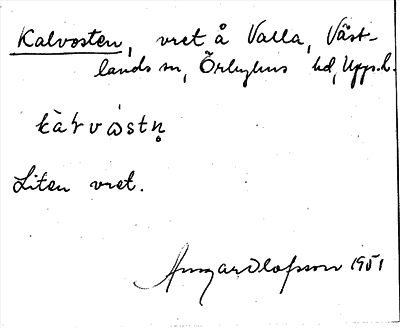 Kalvosten, vret å Valla, Väst-
lands sn, Örbyhus hd, Upps. l.
kàrvåstn̥
Liten vret.
Ingvar Olofsson 1951